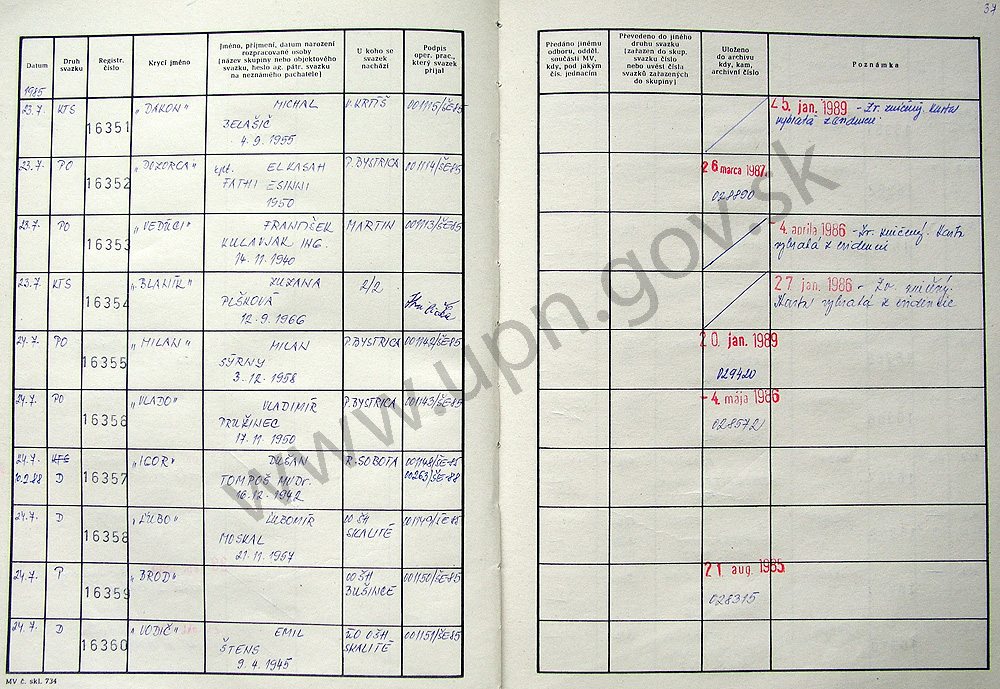 37
Datum
Druh svazku
Registr. číslo
Krycí jméno
Jméno, příjmení, datum narození
rozpracované osoby
(název skupiny nebo objektového
svazku, heslo ag. pátr. svazku
na neznámého pachatele)
U koho se
svazek
nachází
Podpis
oper. prac.,
který svazek
přijal
Předáno jinému
odboru, odděl.
součásti MV,
kdy, pod jakým
čís. jednacím
Převedeno do jiného
druhu svazku
(zařazen do skup.
svazku číslo
nebo uvést čísla
svazků zařazených
do skupiny)
Uloženo
do archivu
kdy, kam,
archivní číslo
Poznámka
1985
23.7. KTS 16351 „DÁKON" MICHAL V. KRTÍŠ 001115/ŠE-85
BELAŠIČ
4.9.1955
25. jan. 1989 - Zv. zničený. Karta
vybratá z evidencie.
23.7. PO 16352 „DOZORCA" EL KASAH P. BYSTRICA 001114/ŠE-85
FATHI ESINNI
1950
26 marca 1987
028890
23.7. PO 16353 „VEDÚCI" FRANTIŠEK MARTIN 001113/ŠE-85
KULAVJAK ING.
14.11.1940
-4 apríla 1986 - Zv. zničený. Karta
vybratá z evidencie
23.7. KTS 16354 „BLANÍK" ZUZANA 2/2
PLŠKOVÁ
12.9.1966
27 jan. 1986 - Zv. zničený.
Karta vybratá z evidencie
24.7. PO 16355 „MILAN" MILAN P. BYSTRICA 001142/ŠE-85
SÝRNY
3.12.1958
20. jan. 1989
029420
24.7. PO 16356 „VLADO" VLADIMÍR P. BYSTRICA 001143/ŠE-85
PRUŽINEC
17.11.1950
-4. mája 1986
028572
24.7. KTS 16357 „IGOR" DUŠAN R. SOBOTA 001148/ŠE-85
10.2.88 D TOMPOŠ MUDr. 00263/ŠE-88
16.12.1942
24.7. D 16358 „ĽUBO" ĽUBOMÍR OO ŠH 001149/ŠE-85
MOSKAL SKALITÉ
21.11.1957
24.7. P 16359 „BROD" OO ŠH 001150/ŠE-85
BUŠINCE
21 aug. 1985
028315
24.7. D 16360 „VODIČ" EMIL ŽO OŠH 001151/ŠE-85
ŠTENS SKALITÉ
9.4.1945
MV č. skl. 734
www.upn.gov.sk